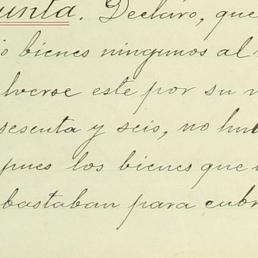 unta. Declaro, que
ó bienes ningunos al
lverse este por su m
sesenta y seis, no hu
pues los bienes que
bastaban para cubr